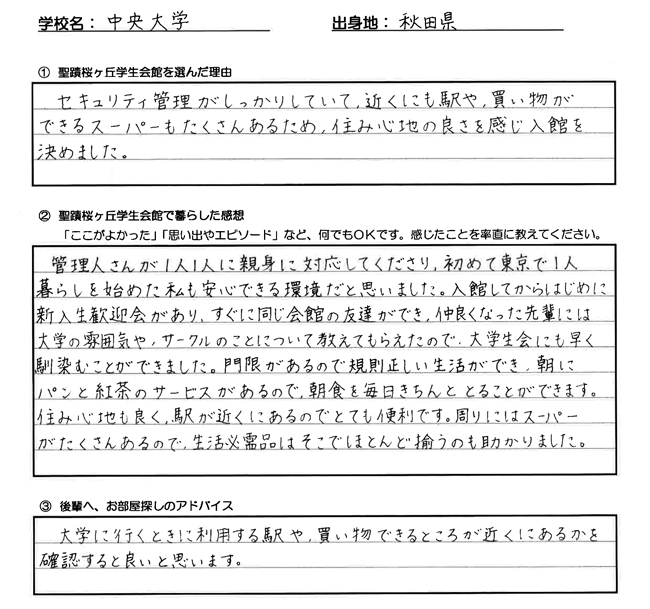 学校名： 中央大学 出身地： 秋田県
① 聖蹟桜ヶ丘学生会館を選んだ理由
セキュリティ管理がしっかりしていて，近くにも駅や，買い物が
できるスーパーもたくさんあるため，住み心地の良さを感じ入館を
決めました。
② 聖蹟桜ヶ丘学生会館で暮らした感想
「ここがよかった」「思い出やエピソード」など、何でもOKです。感じたことを率直に教えてください。
管理人さんが1人1人に親身に対応してくださり，初めて東京で1人
暮らしを始めた私も安心できる環境だと思いました。入館してからはじめに
新入生歓迎会があり，すぐに同じ会館の友達ができ，仲良くなった先輩には
大学の雰囲気や，サークルのことについて教えてもらえたので，大学生会にも早く
馴染むことができました。門限があるので規則正しい生活ができ，朝に
パンと紅茶のサービスがあるので，朝食を毎日きちんととることができます。
住み心地も良く，駅が近くにあるのでとても便利です。周りにはスーパー
がたくさんあるので，生活必需品はそこでほとんど揃うのも助かりました。
③ 後輩へ、お部屋探しのアドバイス
大学に行くときに利用する駅や，買い物できるところが近くにあるかを
確認すると良いと思います。